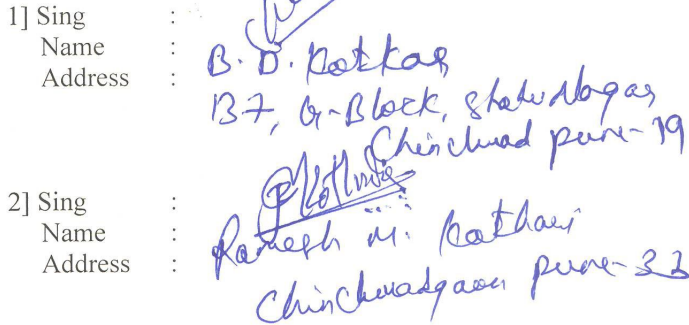 1] Sing :
Name : B. D. Kotkar
Address : B7, G-Block, Shahu Nagar,
Chinchwad pune-19
2] Sing :
Name : Ramesh M. Kothari
Address :
Chinchwadgaon pune-33